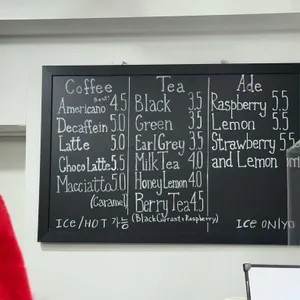 Coffee
Best!
Americano 4.5
Decaffein 5.0
Latte 5.0
Choco Latte 5.5
Macciatto 5.0
(Caramel)
ICE/HOT 가능
Tea
Black 3.5
Green 3.5
Earl Grey 3.5
Milk Tea 4.0
Honey Lemon 4.0
Berry Tea 4.5
(Black Currant & Raspberry)
Ade
Raspberry 5.5
Lemon 5.5
Strawberry 5.5
and Lemon
ICE ONLY